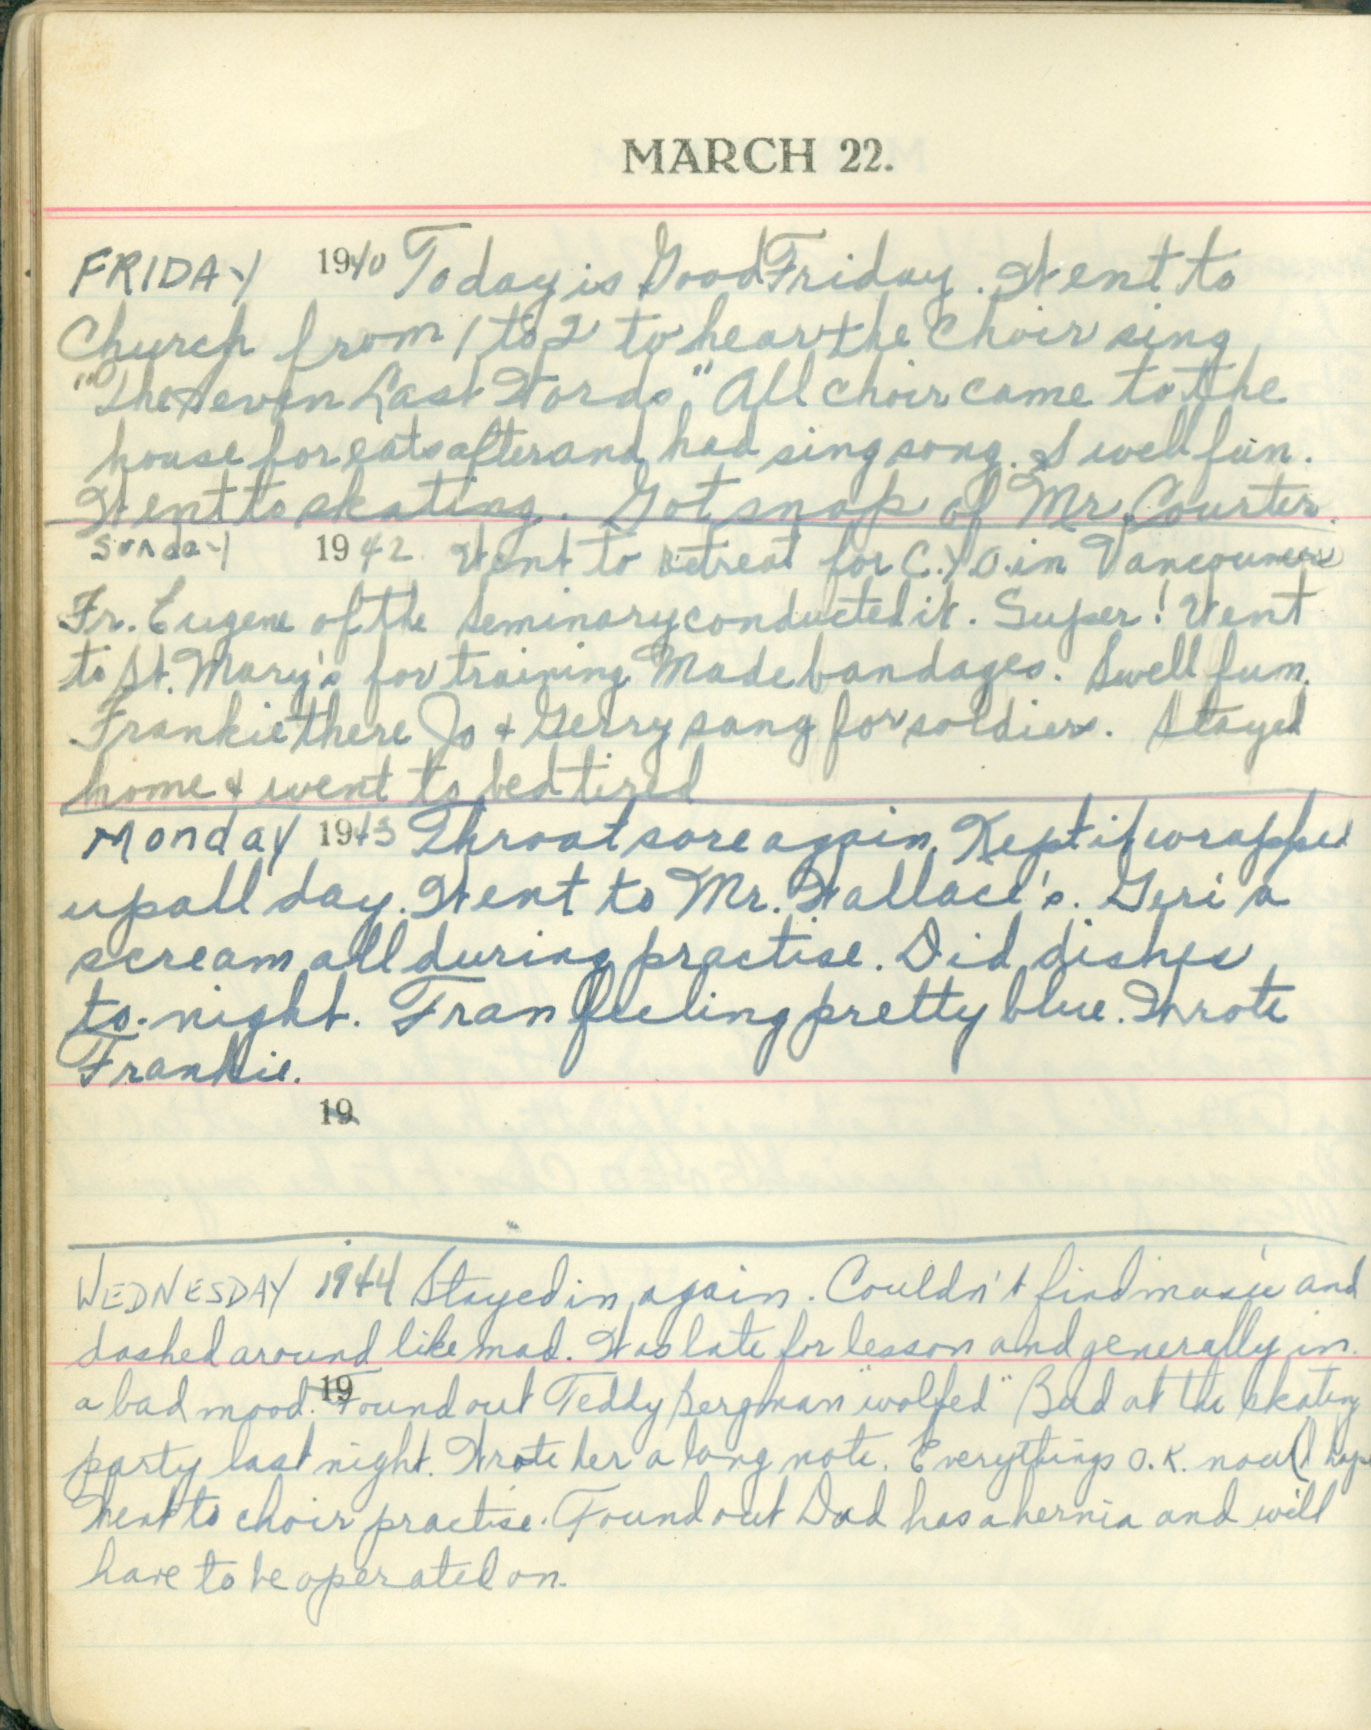 MARCH 22.
FRIDAY 1940 Today is Good Friday. Went to
Church from 1 to 2 to hear the Choir sing
"The Seven Last Words". All choir came to the
house for eats after and had sing song. Swell fun.
Went to skating. Got snap of Mr. Courter.
Sunday 1942 Went to retreat for C.Y.O. in Vancouver
Fr. Eugene of the Seminary conducted it. Super! Went
to St. Mary's for training. Made bandages. Swell fun.
Frankie there Jo & Gerry sang for soldiers. Stayed
home & went to bed tired
Monday 1943 Throat sore again. Kept it wrapped
up all day. Went to Mr. Wallace's. Geri a
scream all during practise. Did dishes
to-night. Fran feeling pretty blue. Wrote
Frankie.
19
WEDNESDAY 1944 Stayed in again. Couldn't find music and
dashed around like mad. Was late for lesson and generally in
19
a bad mood. Found out Teddy Bergman "wolfed" Bud at the skating
party last night. Wrote her a long note. Everythings O.K. now I hope
Went to choir practise. Found out Dad has a hernia and will
have to be operated on.